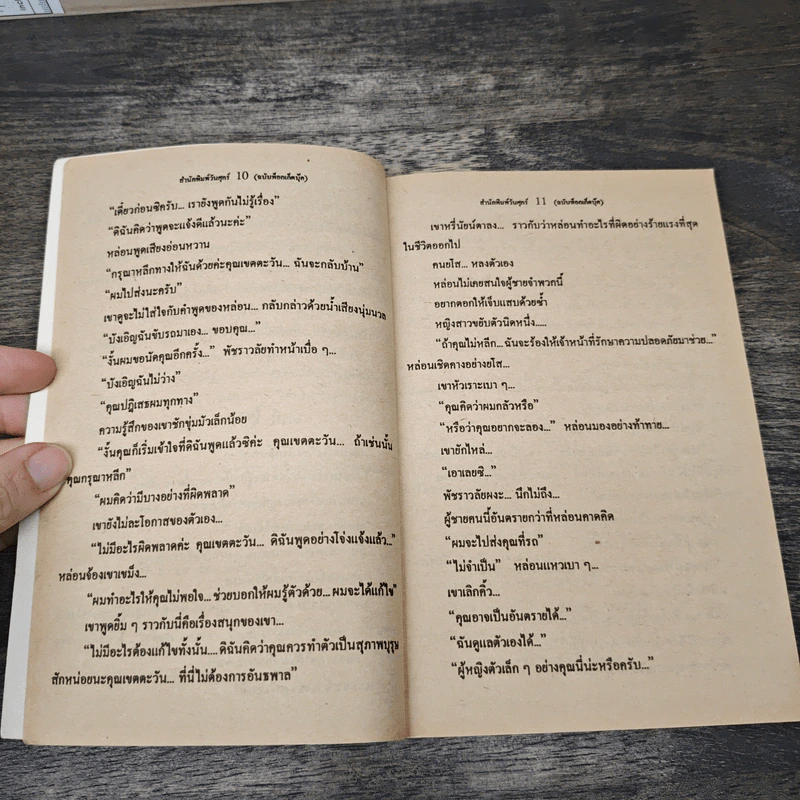 สำนักพิมพ์วันศุกร์ 10 (ฉบับพ็อกเก็ตบุ๊ค)
“เดี๋ยวก่อนซิครับ... เรายังพูดกันไม่รู้เรื่อง”
“ดิฉันคิดว่าพูดจะแจ้งดีแล้วนะค่ะ”
หล่อนพูดเสียงอ่อนหวาน
“กรุณาหลีกทางให้ฉันด้วยค่ะคุณเขตตะวัน... ฉันจะกลับบ้าน”
“ผมไปส่งนะครับ”
เขาดูจะไม่ใส่ใจกับคำพูดของหล่อน... กลับกล่าวด้วยน้ำเสียงนุ่มนวล
“บังเอิญฉันขับรถมาเอง... ขอบคุณ...”
“งั้นผมขอนัดคุณอีกครั้ง...” พัชราวลัยทำหน้าเบื่อ ๆ...
“บังเอิญฉันไม่ว่าง”
“คุณปฏิเสธผมทุกทาง”
ความรู้สึกของเขาชักขุ่นมัวเล็กน้อย
“งั้นคุณก็เริ่มเข้าใจที่ดิฉันพูดแล้วซิค่ะ คุณเขตตะวัน... ถ้าเช่นนั้น
คุณกรุณาหลีก”
“ผมคิดว่ามีบางอย่างที่ผิดพลาด”
เขายังไม่ละโอกาสของตัวเอง...
“ไม่มีอะไรผิดพลาดค่ะ คุณเขตตะวัน... ดิฉันพูดอย่างโจ่งแจ้งแล้ว...”
หล่อนจ้องเขาเขม็ง...
“ผมทำอะไรให้คุณไม่พอใจ... ช่วยบอกให้ผมรู้ตัวด้วย... ผมจะได้แก้ไข”
เขาพูดยิ้ม ๆ ราวกับนี่คือเรื่องสนุกของเขา...
“ไม่มีอะไรต้องแก้ไขทั้งนั้น.... ดิฉันคิดว่าคุณควรทำตัวเป็นสุภาพบุรุษ
สักหน่อยนะคุณเขตตะวัน... ที่นี่ไม่ต้องการอันธพาล”
สำนักพิมพ์วันศุกร์ 11 (ฉบับพ็อกเก็ตบุ๊ค)
เขาหรี่นัยน์ตาลง... ราวกับว่าหล่อนทำอะไรที่ผิดอย่างร้ายแรงที่สุด
ในชีวิตออกไป
คนยโส... หลงตัวเอง
หล่อนไม่เคยสนใจผู้ชายจำพวกนี้
อยากตอกให้เจ็บแสบด้วยซ้ำ
หญิงสาวขยับตัวนิดหนึ่ง.....
“ถ้าคุณไม่หลีก... ฉันจะร้องให้เจ้าหน้าที่รักษาความปลอดภัยมาช่วย...”
หล่อนเชิดคางอย่างยโส...
เขาหัวเราะเบา ๆ...
“คุณคิดว่าผมกลัวหรือ”
“หรือว่าคุณอยากจะลอง...” หล่อนมองอย่างท้าทาย...
เขายักไหล่...
“เอาเลยซิ...”
พัชราวลัยผงะ... นึกไม่ถึง...
ผู้ชายคนนี้อันตรายกว่าที่หล่อนคาดคิด
“ผมจะไปส่งคุณที่รถ”
“ไม่จำเป็น” หล่อนแหวเบา ๆ...
เขาเลิกคิ้ว...
“คุณอาจเป็นอันตรายได้...”
“ฉันดูแลตัวเองได้...”
“ผู้หญิงตัวเล็ก ๆ อย่างคุณนี่น่ะหรือครับ...”